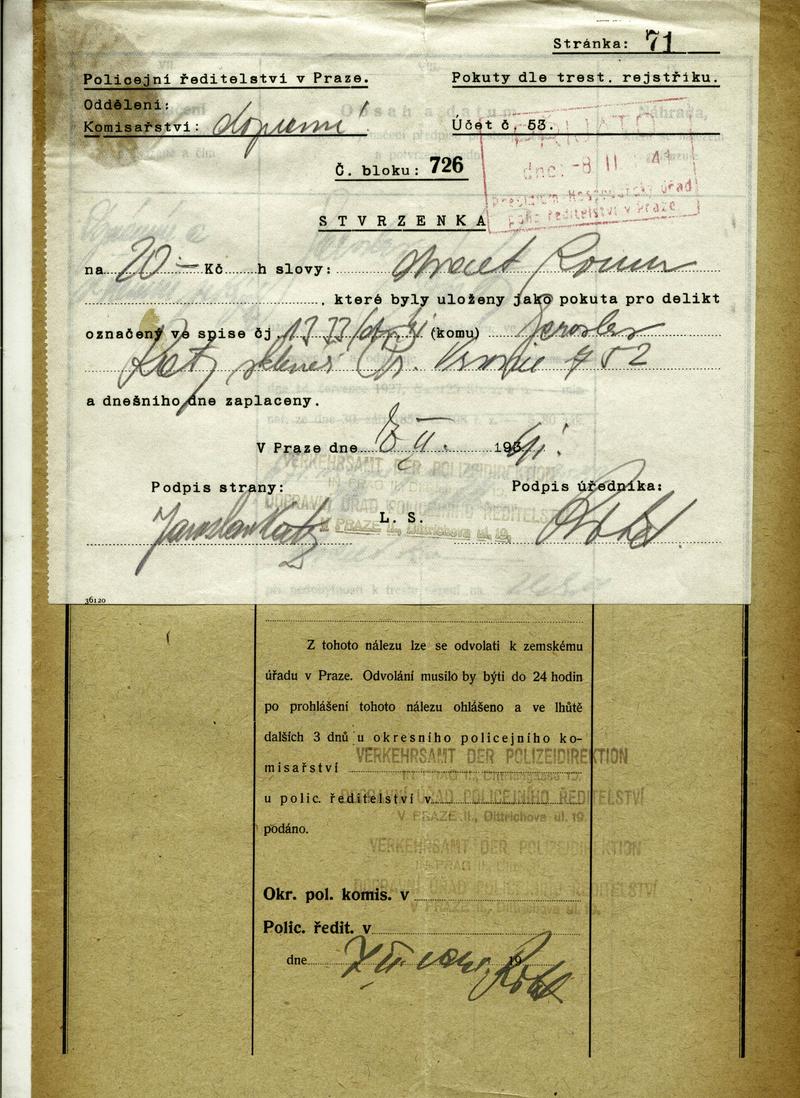 Stránka: 71
Policejní ředitelství v Praze. Pokuty dle trest. rejstříku.
Oddělení:
Komisařství: dopravní Účet č. 53.
dne: -8 II 41
presidium Hospodářský úřad
polic. ředitelství v Praze
Č. bloku: 726
STVRZENKA
na 20 - Kč h slovy: dvacet Korun
, které byly uloženy jako pokuta pro delikt
označený ve spise čj. (komu) Jaroslav
Katz 952
a dnešního dne zaplaceny.
V Praze dne 8 II. 1941.
Podpis strany: Podpis úředníka:
L. S.
Jaroslav Katz
VERKEHRSAMT DER POLIZEIDIREKTION
DOPRAVNÍ ÚŘAD POLICEJNÍHO ŘEDITELSTVÍ
V PRAZE II., Dittrichova ul. 19.
36120
Z tohoto nálezu lze se odvolati k zemskému
úřadu v Praze. Odvolání musilo by býti do 24 hodin
po prohlášení tohoto nálezu ohlášeno a ve lhůtě
dalších 3 dnů u okresního policejního ko-
misařství
u polic. ředitelství v
podáno.
VERKEHRSAMT DER POLIZEIDIREKTION
IN PRAG II., Dittrichgasse 19.
DOPRAVNÍ ÚŘAD POLICEJNÍHO ŘEDITELSTVÍ
V PRAZE II., Dittrichova ul. 19.
VERKEHRSAMT DER POLIZEIDIREKTION
DOPRAVNÍ ÚŘAD POLICEJNÍHO ŘEDITELSTVÍ
V PRAZE II., Dittrichova ul. 19.
Okr. pol. komis. v
Polic. ředit. v
dne 7 II. 1941. 19